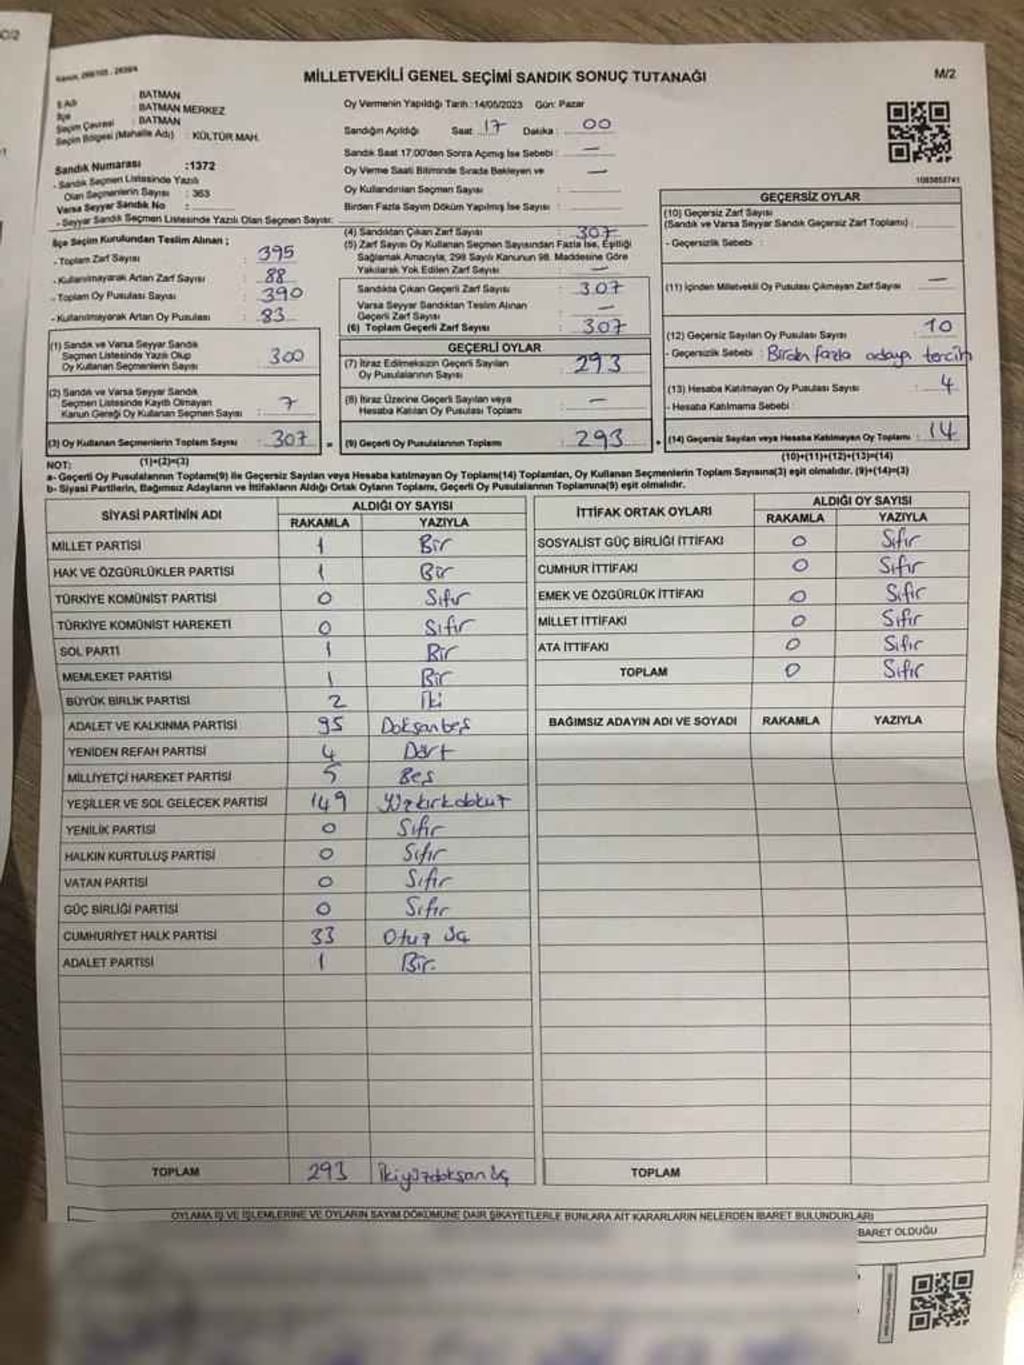 MİLLETVEKİLİ GENEL SEÇİMİ SANDIK SONUÇ TUTANAĞI
M/2
BATMAN
İlçe : BATMAN MERKEZ
Seçim Çevresi : BATMAN
Seçim Bölgesi (Mahalle Adı) : KÜLTÜR MAH.
Sandık Numarası :1372
- Sandık Seçmen Listesinde Yazılı
Olan Seçmenlerin Sayısı : 363
Varsa Seyyar Sandık No :
- Seyyar Sandık Seçmen Listesinde Yazılı Olan Seçmen Sayısı:
Oy Vermenin Yapıldığı Tarih :14/05/2023 Gün: Pazar
Sandığın Açıldığı Saat : 17 Dakika : 00
Sandık Saat 17:00'den Sonra Açmış İse Sebebi : —
Oy Verme Saati Bitiminde Sırada Bekleyen ve —
Oy Kullandırılan Seçmen Sayısı :
Birden Fazla Sayım Döküm Yapılmış İse Sayısı :
1083853741
İlçe Seçim Kurulundan Teslim Alınan ;
- Toplam Zarf Sayısı : 395
- Kullanılmayarak Artan Zarf Sayısı : 88
- Toplam Oy Pusulası Sayısı : 390
- Kullanılmayarak Artan Oy Pusulası : 83
(1) Sandık ve Varsa Seyyar Sandık
Seçmen Listesinde Yazılı Olup
Oy Kullanan Seçmenlerin Sayısı : 300
(2) Sandık ve Varsa Seyyar Sandık
Seçmen Listesinde Kayıtlı Olmayan
Kanun Gereği Oy Kullanan Seçmen Sayısı : 7
(3) Oy Kullanan Seçmenlerin Toplam Sayısı : 307
(1)+(2)=(3)
(4) Sandıktan Çıkan Zarf Sayısı : 307
(5) Zarf Sayısı Oy Kullanan Seçmen Sayısından Fazla İse, Eşitliği
Sağlamak Amacıyla, 298 Sayılı Kanunun 98. Maddesine Göre
Yakılarak Yok Edilen Zarf Sayısı : —
Sandıkta Çıkan Geçerli Zarf Sayısı : 307
Varsa Seyyar Sandıktan Teslim Alınan
Geçerli Zarf Sayısı : —
(6) Toplam Geçerli Zarf Sayısı : 307
GEÇERLİ OYLAR
(7) İtiraz Edilmeksizin Geçerli Sayılan
Oy Pusulalarının Sayısı : 293
(8) İtiraz Üzerine Geçerli Sayılan veya
Hesaba Katılan Oy Pusulası Toplamı : —
= (9) Geçerli Oy Pusulalarının Toplamı : 293
GEÇERSİZ OYLAR
(10) Geçersiz Zarf Sayısı
(Sandık ve Varsa Seyyar Sandık Geçersiz Zarf Toplamı) :
- Geçersizlik Sebebi :
(11) İçinden Milletvekili Oy Pusulası Çıkmayan Zarf Sayısı : —
(12) Geçersiz Sayılan Oy Pusulası Sayısı : 10
- Geçersizlik Sebebi : Birden fazla adaya tercih
(13) Hesaba Katılmayan Oy Pusulası Sayısı : 4
- Hesaba Katılmama Sebebi :
+ (14) Geçersiz Sayılan veya Hesaba Katılmayan Oy Toplamı : 14
(10)+(11)+(12)+(13)=(14)
NOT:
a- Geçerli Oy Pusulalarının Toplamı(9) ile Geçersiz Sayılan veya Hesaba katılmayan Oy Toplamı(14) Toplamları, Oy Kullanan Seçmenlerin Toplam Sayısına(3) eşit olmalıdır. (9)+(14)=(3)
b- Siyasi Partilerin, Bağımsız Adayların ve İttifakların Aldığı Ortak Oyların Toplamı, Geçerli Oy Pusulalarının Toplamına(9) eşit olmalıdır.
SİYASİ PARTİNİN ADI ALDIĞI OY SAYISI
RAKAMLA YAZIYLA
MİLLET PARTİSİ 1 Bir
HAK VE ÖZGÜRLÜKLER PARTİSİ 1 Bir
TÜRKİYE KOMÜNİST PARTİSİ 0 Sıfır
TÜRKİYE KOMÜNİST HAREKETİ 0 Sıfır
SOL PARTİ 1 Bir
MEMLEKET PARTİSİ 1 Bir
BÜYÜK BİRLİK PARTİSİ 2 İki
ADALET VE KALKINMA PARTİSİ 95 Doksanbeş
YENİDEN REFAH PARTİSİ 4 Dört
MİLLİYETÇİ HAREKET PARTİSİ 5 Beş
YEŞİLLER VE SOL GELECEK PARTİSİ 149 Yüzkırkdokuz
YENİLİK PARTİSİ 0 Sıfır
HALKIN KURTULUŞ PARTİSİ 0 Sıfır
VATAN PARTİSİ 0 Sıfır
GÜÇ BİRLİĞİ PARTİSİ 0 Sıfır
CUMHURİYET HALK PARTİSİ 33 Otuz üç
ADALET PARTİSİ 1 Bir.
TOPLAM 293 İkiyüzdoksan üç
İTTİFAK ORTAK OYLARI ALDIĞI OY SAYISI
RAKAMLA YAZIYLA
SOSYALİST GÜÇ BİRLİĞİ İTTİFAKI 0 Sıfır
CUMHUR İTTİFAKI 0 Sıfır
EMEK VE ÖZGÜRLÜK İTTİFAKI 0 Sıfır
MİLLET İTTİFAKI 0 Sıfır
ATA İTTİFAKI 0 Sıfır
TOPLAM 0 Sıfır
BAĞIMSIZ ADAYIN ADI VE SOYADI RAKAMLA YAZIYLA
TOPLAM
OYLAMA İŞ VE İŞLEMLERİNE VE OYLARIN SAYIM DÖKÜMÜNE DAİR ŞİKAYETLERLE BUNLARA AİT KARARLARIN NELERDEN İBARET BULUNDUKLARI
BARET OLDUĞU